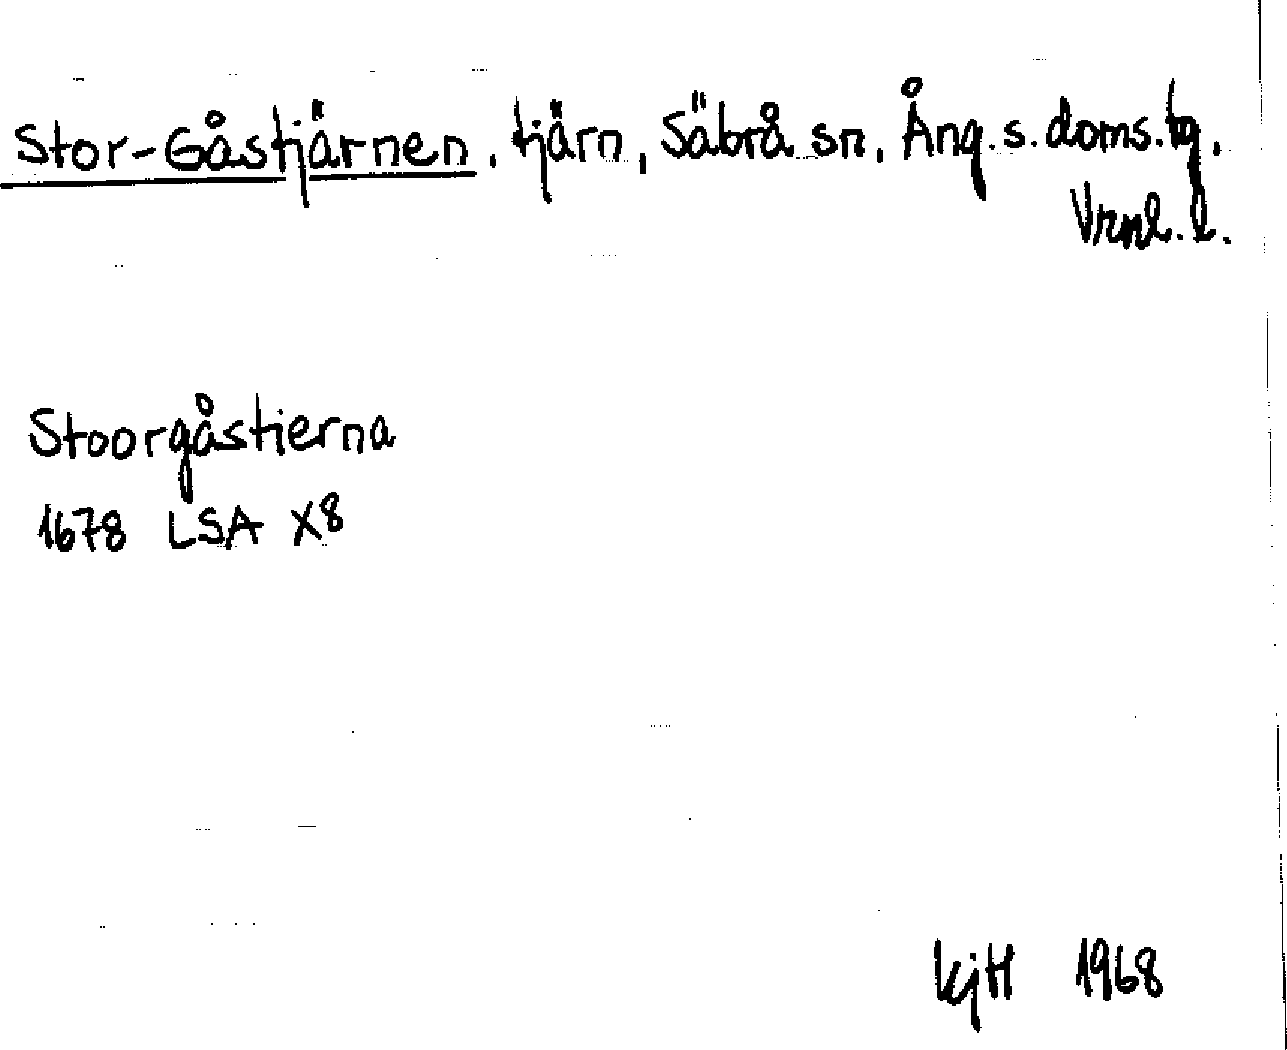 Stor-Gåstjärnen, tjärn, Säbrå sn, Ång.s.doms.tg,
Vrnl.l.
Stoorgåstierna
1678 LSA X8
kjH 1968